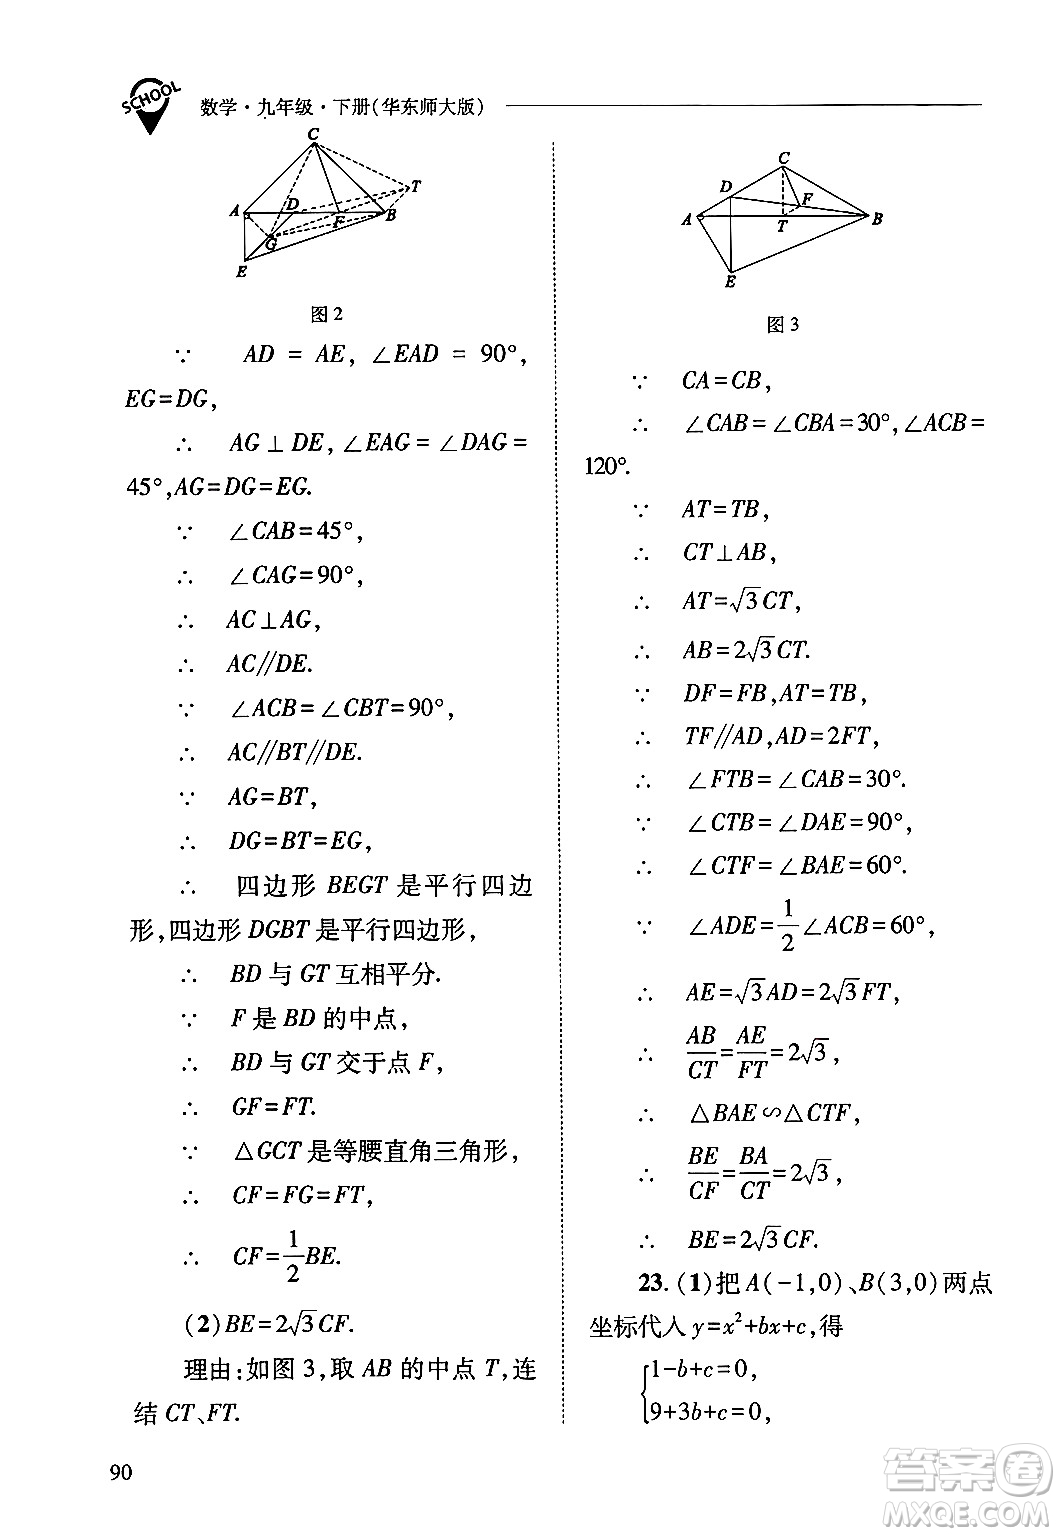 SCHOOL
数学·九年级·下册(华东师大版)
C
T
A
D
F
B
G
E
图2
∵ AD = AE, ∠EAD = 90°,
EG=DG,
∴ AG⊥DE, ∠EAG = ∠DAG =
45°,AG=DG=EG.
∵ ∠CAB=45°,
∴ ∠CAG=90°,
∴ AC⊥AG,
∴ AC//DE.
∵ ∠ACB=∠CBT=90°,
∴ AC//BT//DE.
∵ AG=BT,
∴ DG=BT=EG,
∴ 四边形 BEGT 是平行四边
形,四边形 DGBT 是平行四边形,
∴ BD 与 GT 互相平分.
∵ F 是 BD 的中点,
∴ BD 与 GT 交于点 F,
∴ GF=FT.
∵ △GCT 是等腰直角三角形,
∴ CF=FG=FT,
∴ CF=1/2BE.
(2)BE=2√3CF.
理由:如图 3,取 AB 的中点 T,连
结 CT、FT.
C
D
F
A
T
B
E
图3
∵ CA=CB,
∴ ∠CAB=∠CBA=30°,∠ACB=
120°.
∵ AT=TB,
∴ CT⊥AB,
∴ AT=√3CT,
∴ AB=2√3CT.
∵ DF=FB,AT=TB,
∴ TF//AD,AD=2FT,
∴ ∠FTB=∠CAB=30°.
∵ ∠CTB=∠DAE=90°,
∴ ∠CTF=∠BAE=60°.
∵ ∠ADE=1/2∠ACB=60°,
∴ AE=√3AD=2√3FT,
∴ AB/CT=AE/FT=2√3,
∴ △BAE∽△CTF,
∴ BE/CF=BA/CT=2√3,
∴ BE=2√3CF.
23.(1)把 A(-1,0)、B(3,0)两点
坐标代入 y=x²+bx+c,得
{1-b+c=0,
9+3b+c=0,
90
答案圈
MXQE.COM